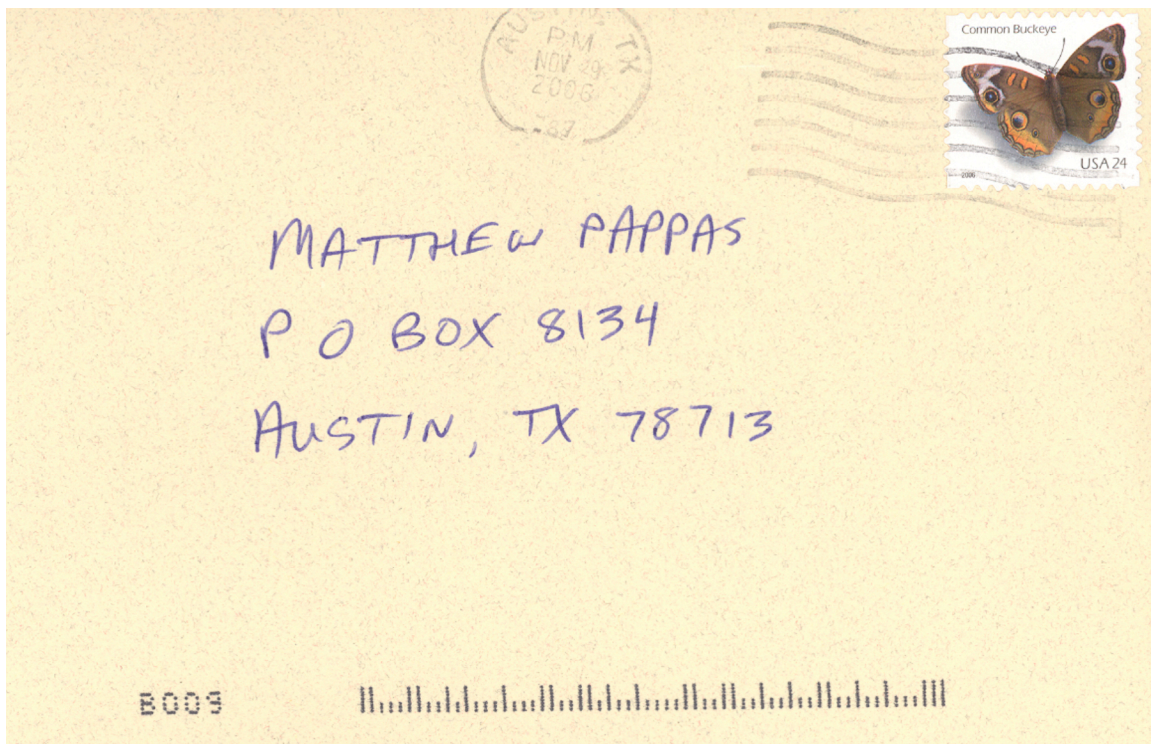 AUSTIN, TX
PM
NOV 29
2006
Common Buckeye
USA 24
2006
MATTHEW PAPPAS
P O BOX 8134
AUSTIN, TX 78713
B009